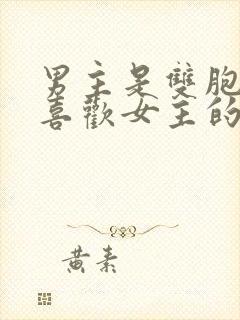 男主是雙胞
喜歡女主的
黃素